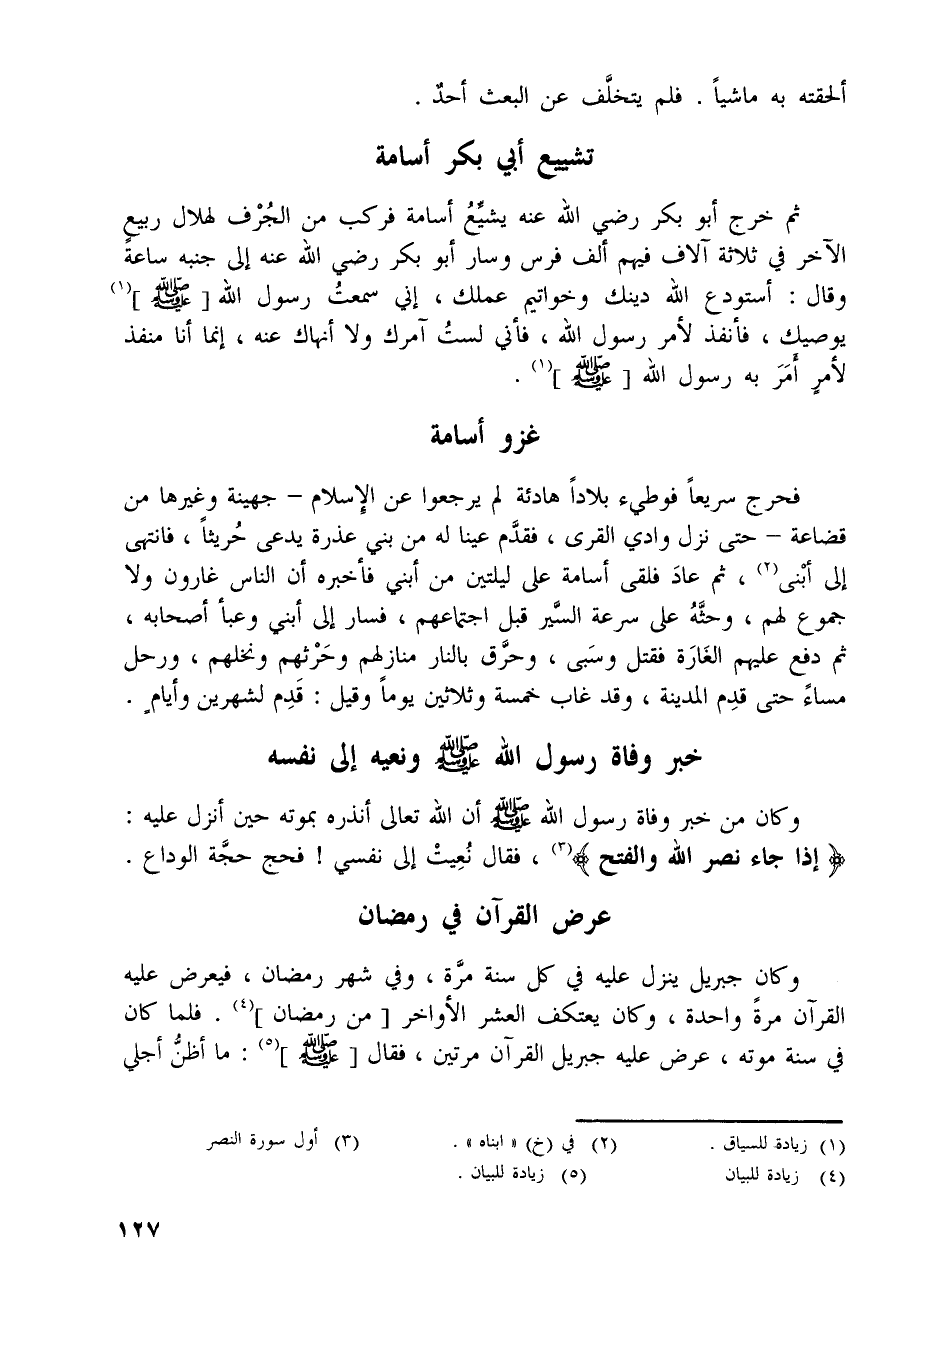 ألحقته به ماشياً . فلم يتخلَّف عن البعث أحدٌ .
تشييع أبي بكر أسامة
ثم خرج أبو بكر رضي الله عنه يشيِّعُ أسامة فركب من الجُرْف لهلال ربيع
الآخر في ثلاثة آلاف فيهم ألف فرس وسار أبو بكر رضي الله عنه إلى جنبه ساعةً
وقال : أستودع الله دينك وخواتيم عملك ، إني سمعتُ رسول الله [ ﷺ ](١)
يوصيك ، فأنفذ لأمر رسول الله ، فأني لستُ آمرك ولا أنهاك عنه ، إنما أنا منفذ
لأمرٍ أَمَرَ به رسول الله [ ﷺ ](١) .
غزو أسامة
فحرج سريعاً فوطيء بلاداً هادئة لم يرجعوا عن الإِسلام – جهينة وغيرها من
قضاعة – حتى نزل وادي القرى ، فقدَّم عينا له من بني عذرة يدعى حُريثاً ، فانتهى
إلى أبْنى(٢) ، ثم عادَ فلقى أسامة على ليلتين من أبني فأخبره أن الناس غارون ولا
جموع لهم ، وحثَّهُ على سرعة السَّير قبل اجتماعهم ، فسار إلى أبني وعبأ أصحابه ،
ثم دفع عليهم الغَارَة فقتل وسَبى ، وحرَّق بالنار منازلهم وحَرْثهم ونخلهم ، ورحل
مساءً حتى قدِم المدينة ، وقد غاب خمسة وثلاثين يوماً وقيل : قَدِم لشهرين وأيامٍ .
خبر وفاة رسول الله ﷺ ونعيه إلى نفسه
وكان من خبر وفاة رسول الله ﷺ أن الله تعالى أنذره بموته حين أنزل عليه :
﴿ إذا جاء نصر الله والفتح ﴾(٣) ، فقال نُعِيتْ إلى نفسي ! فحج حجَّة الوداع .
عرض القرآن في رمضان
وكان جبريل ينزل عليه في كل سنة مرَّة ، وفي شهر رمضان ، فيعرض عليه
القرآن مرةً واحدة ، وكان يعتكف العشر الأواخر [ من رمضان ](٤) . فلما كان
في سنة موته ، عرض عليه جبريل القرآن مرتين ، فقال [ ﷺ ](٥) : ما أظنُّ أجلي
(١) زيادة للسياق . (٢) في (خ) « ابناه » . (٣) أول سورة النصر
(٤) زيادة للبيان (٥) زيادة للبيان .
١٢٧